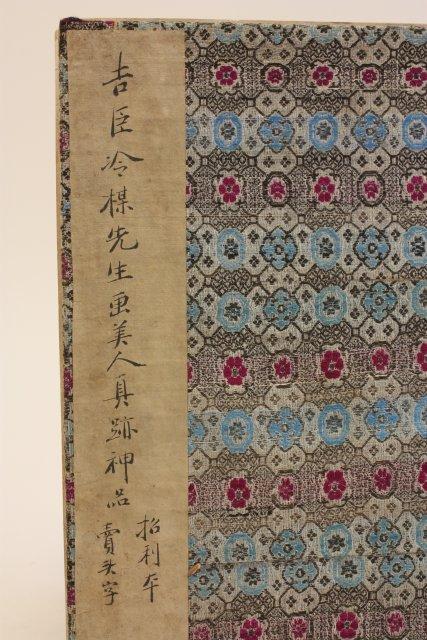 吉臣冷楳先生画美人真跡神品
招利平
賣头字